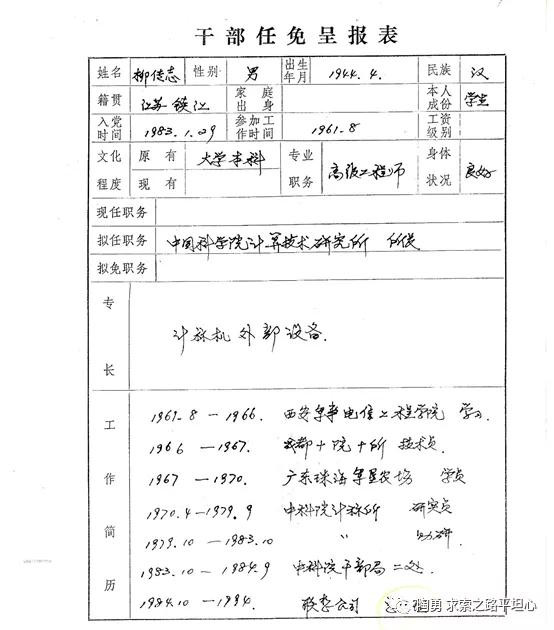 干部任免呈报表
姓名 柳传志 性别 男 出生年月 1944.4. 民族 汉
籍贯 江苏镇江 家庭出身 本人成份 学生
入党时间 1983.1.29 参加工作时间 1961.8 工资级别
文化程度 原有 大学本科 专业职务 高级工程师 身体状况 良好
现有
现任职务
拟任职务 中国科学院计算技术研究所 所长
拟免职务
专长 计算机外部设备.
工作简历
1961.8 — 1966. 西安军事电信工程学院 学习
1966 — 1967. 成都十院十所 技术员.
1967 — 1970. 广东珠海 农场 学员
1970.4 — 1979.9 中科院计算所 研究员
1979.10 — 1983.10 〃 助研
1983.10 — 1984.9 中科院干部局二处.
1984.10 — 1994. 联想公司
陶勇 求索之路平坦心